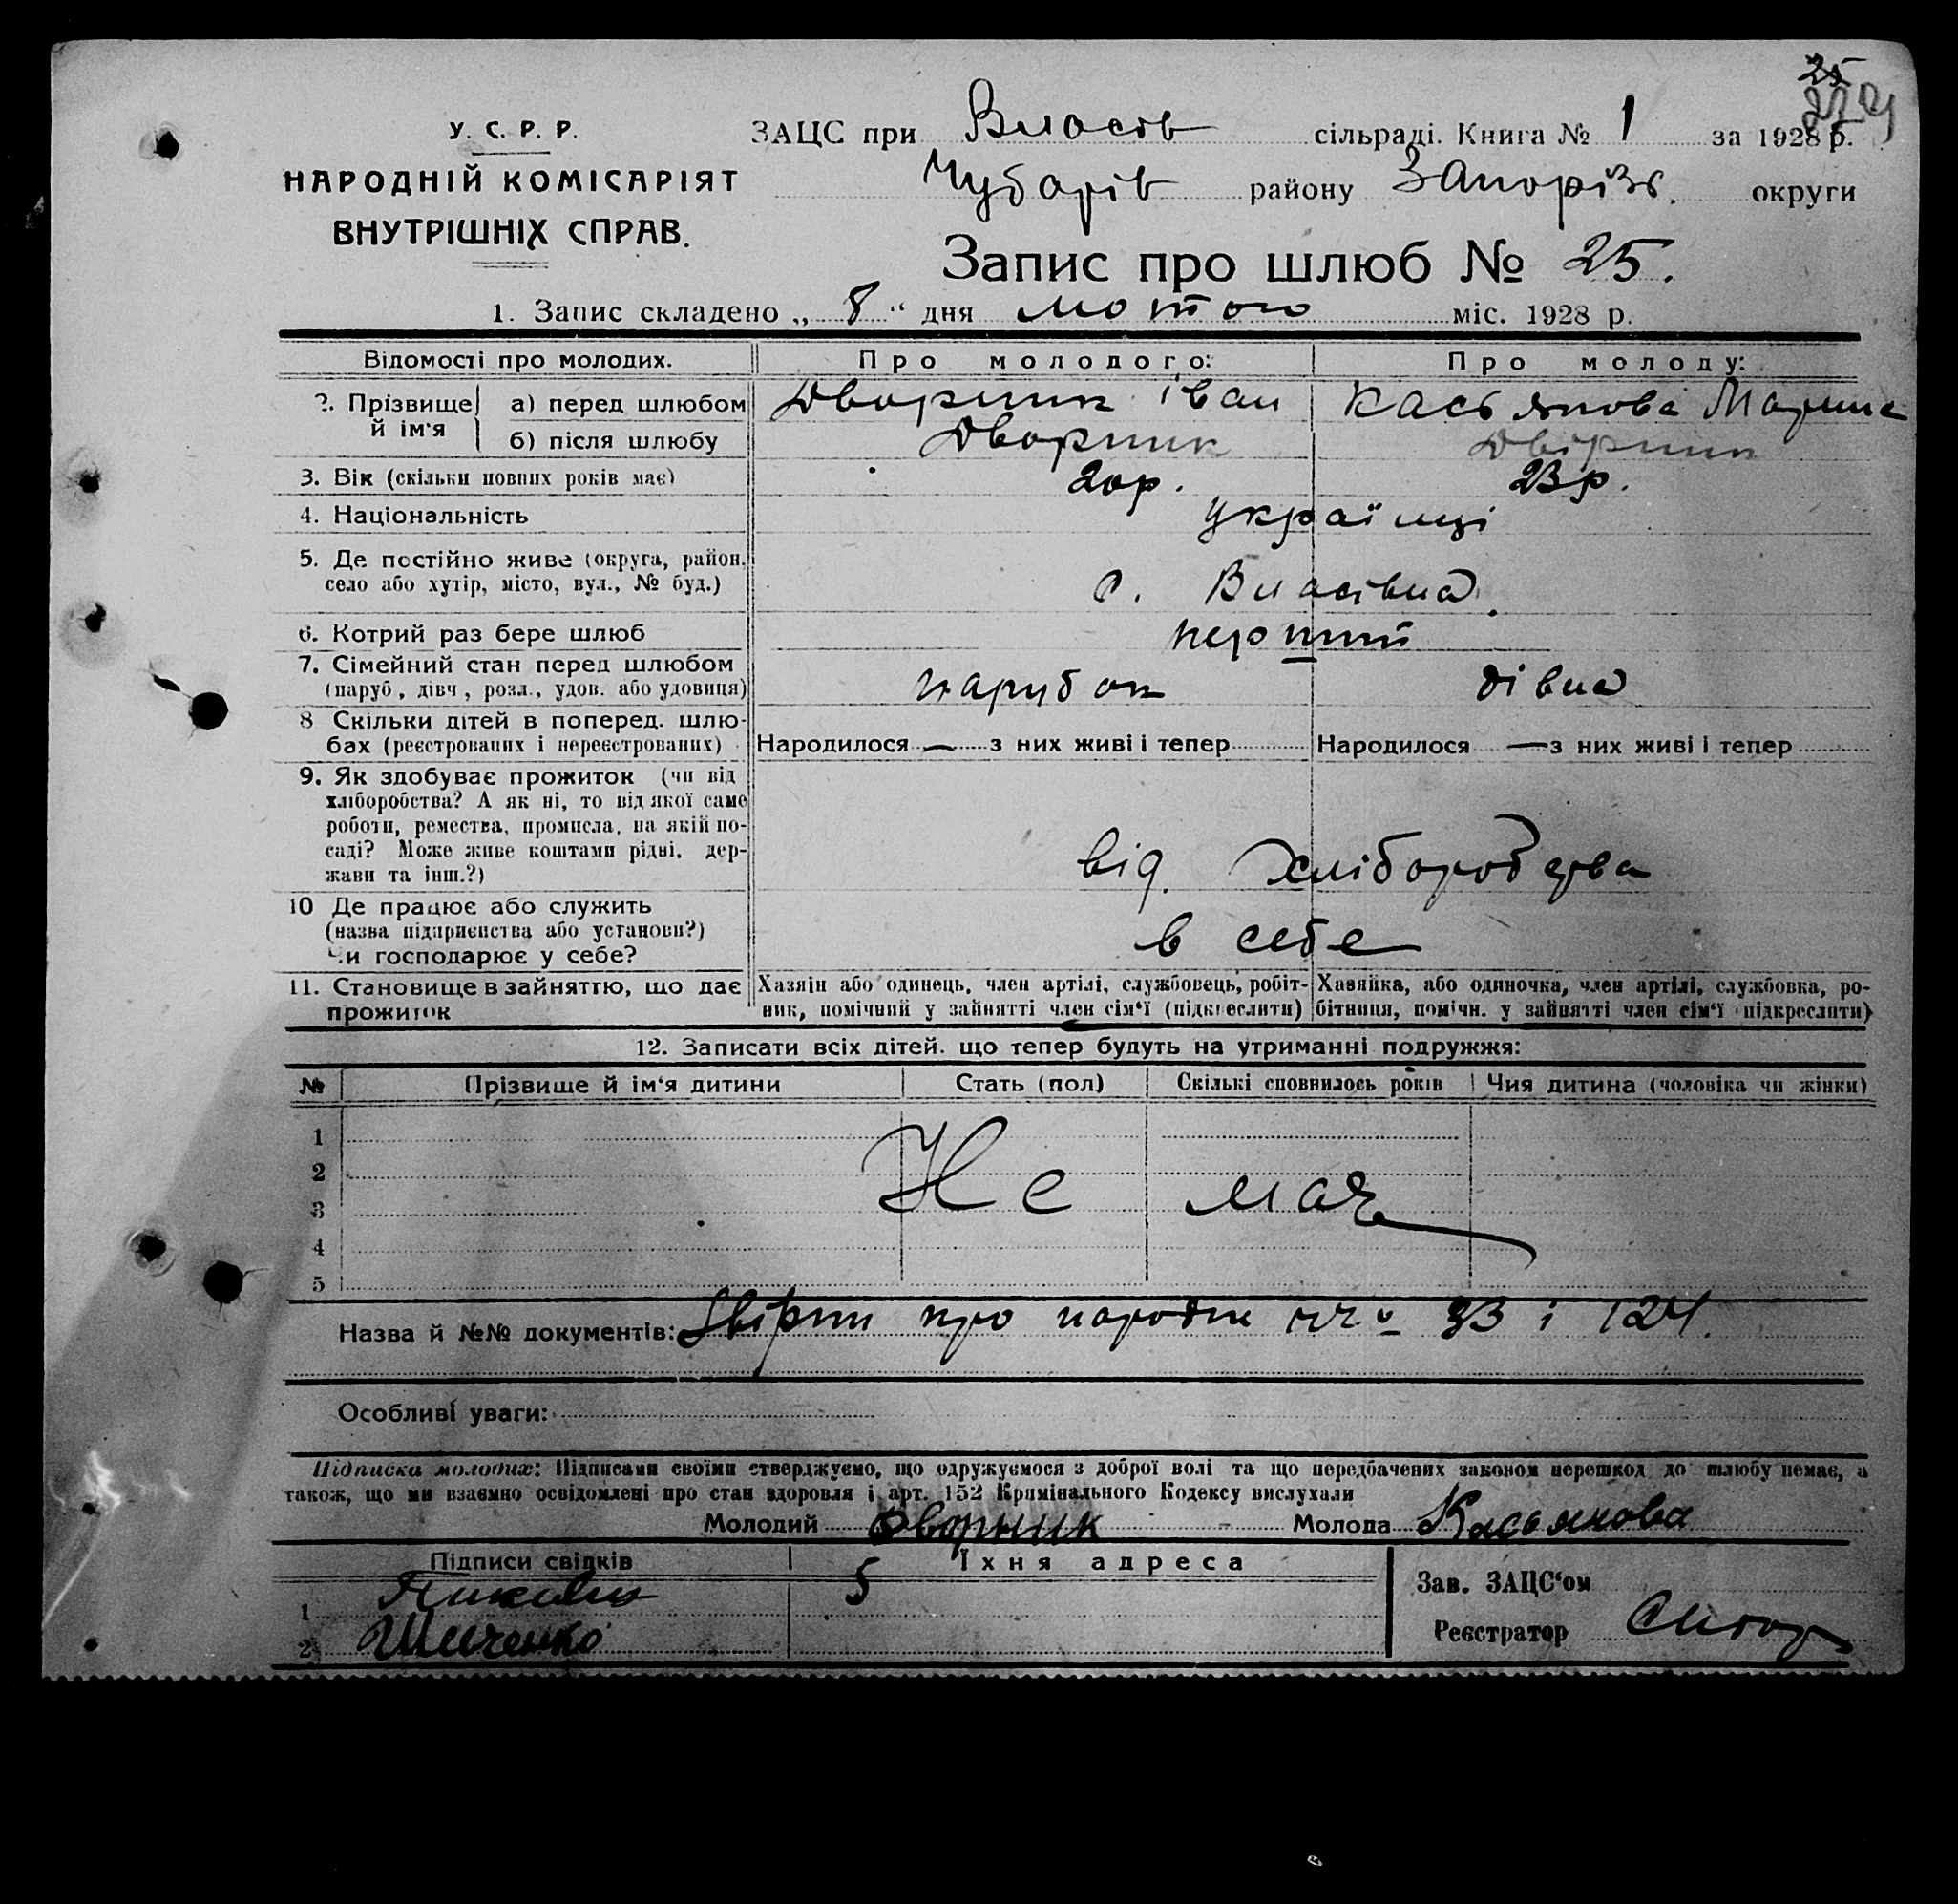 25
У. С. Р. Р.
НАРОДНІЙ КОМІСАРІЯТ
ВНУТРІШНІХ СПРАВ.
ЗАЦС при Власів сільраді. Книга № 1 за 1928 р.
Чубарів району Запорізь. округи
Запис про шлюб № 25.
1. Запис складено „ 8 “ дня лютого міс. 1928 р.
Відомості про молодих. Про молодого: Про молоду:
2. Прізвище й ім'я а) перед шлюбом Дворник Іван Касьянова Марина
б) після шлюбу Дворник Двірник
3. Вік (скільки повних років має) 20р. 23р.
4. Національність Українці
5. Де постійно живе (округа, район,
село або хутір, місто, вул., № буд.) с. Власівка.
6. Котрий раз бере шлюб перший
7. Сімейний стан перед шлюбом
(паруб., дівч., розл., удов. або удовиця) парубок дівка
8 Скільки дітей в поперед. шлю-
бах (реєстрованих і нереєстрованих) Народилося — з них живі і тепер Народилося — з них живі і тепер
9. Як здобуває прожиток (чи від
хліборобства? А як ні, то від якої саме
роботи, ремества, промисла, на якій по-
саді? Може живе коштами рідні, дер-
жави та інш.?) від хліборобства
10 Де працює або служить
(назва підприємства або установи?)
Чи господарює у себе? в себе
11. Становище в зайняттю, що дає
прожиток
Хазяін або одинець, член артілі, службовець, робіт-
ник, помічний у зайнятті член сім'ї (підкреслити)
Хазяйка, або одиночка, член артілі, службовка, ро-
бітниця, помічн. у зайнятті член сім'ї (підкреслити)
12. Записати всіх дітей. що тепер будуть на утриманні подружжя:
№ Прізвище й ім'я дитини Стать (пол) Скількі сповнилось років Чия дитина (чоловіка чи жінки)
1
2
3
4
5
Не має
Назва й №№ документів: про народж 93 і 124.
Особливі уваги:
Підписка молодих: Підписами своїми стверджуємо, що одружуємося з доброї волі та що передбачених законом перешкод до шлюбу немає, а
також, що ми взаємно освідомлені про стан здоровля і арт. 152 Кримінального Кодексу вислухали
Молодий Дворник Молода Касьянова
Підписи свідків Їхня адреса
Зав. ЗАЦС'ом
1
2
Реєстратор